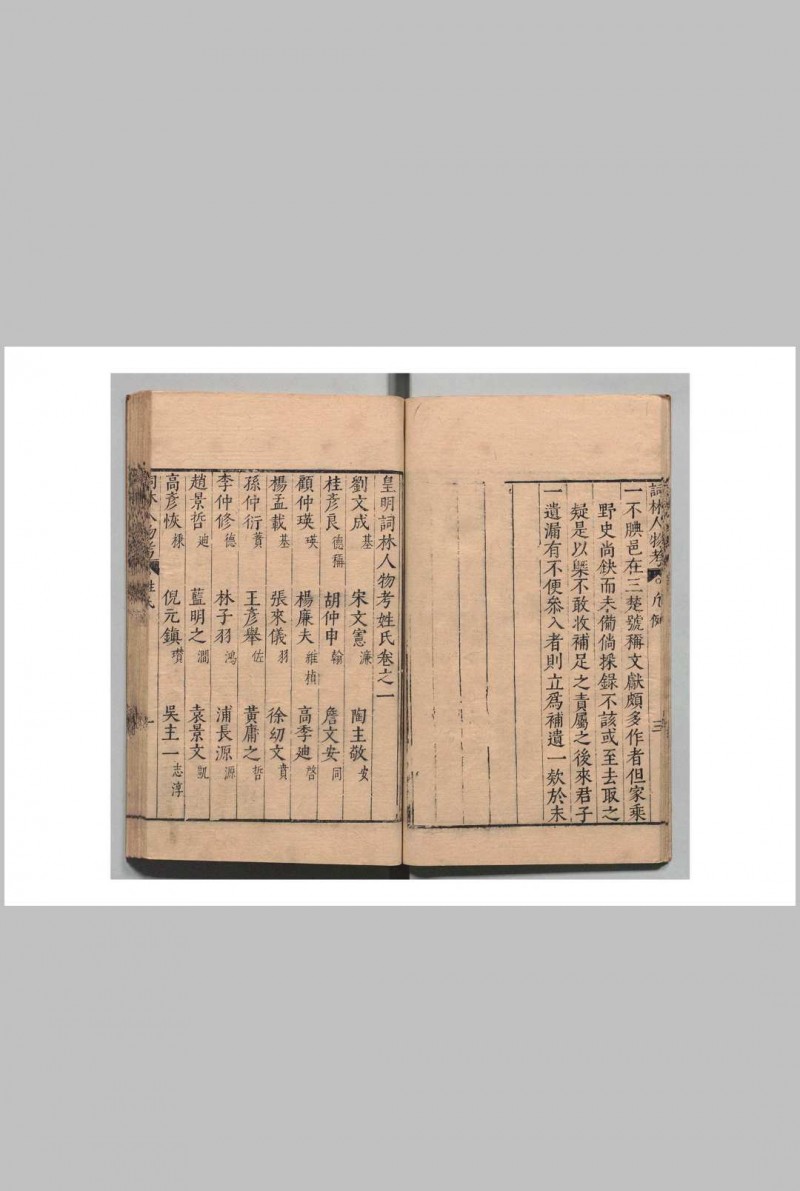 詞林人物考 凡例 三
一不腆邑在三楚號稱文獻頗多作者但家乘
野史尚鈌而未備倘採錄不該或至去取之
疑是以槩不敢收補足之責屬之後來君子
一遺漏有不便叅入者則立爲補遺一欵於末
皇明詞林人物考姓氏卷之一
劉文成基 宋文憲濂 陶主敬安
桂彦良德稱 胡仲申翰 詹文安同
顧仲瑛瑛 楊廉夫維楨 高季迪啓
楊孟載基 張來儀羽 徐幼文賁
孫仲衍蕡 王彦舉佐 黃庸之哲
李仲修德 林子羽鴻 浦長源源
趙景哲迪 藍明之澗 袁景文凱
高彦恢棅 倪元鎮瓚 吳主一志淳
詞林人物考 姓氏 一